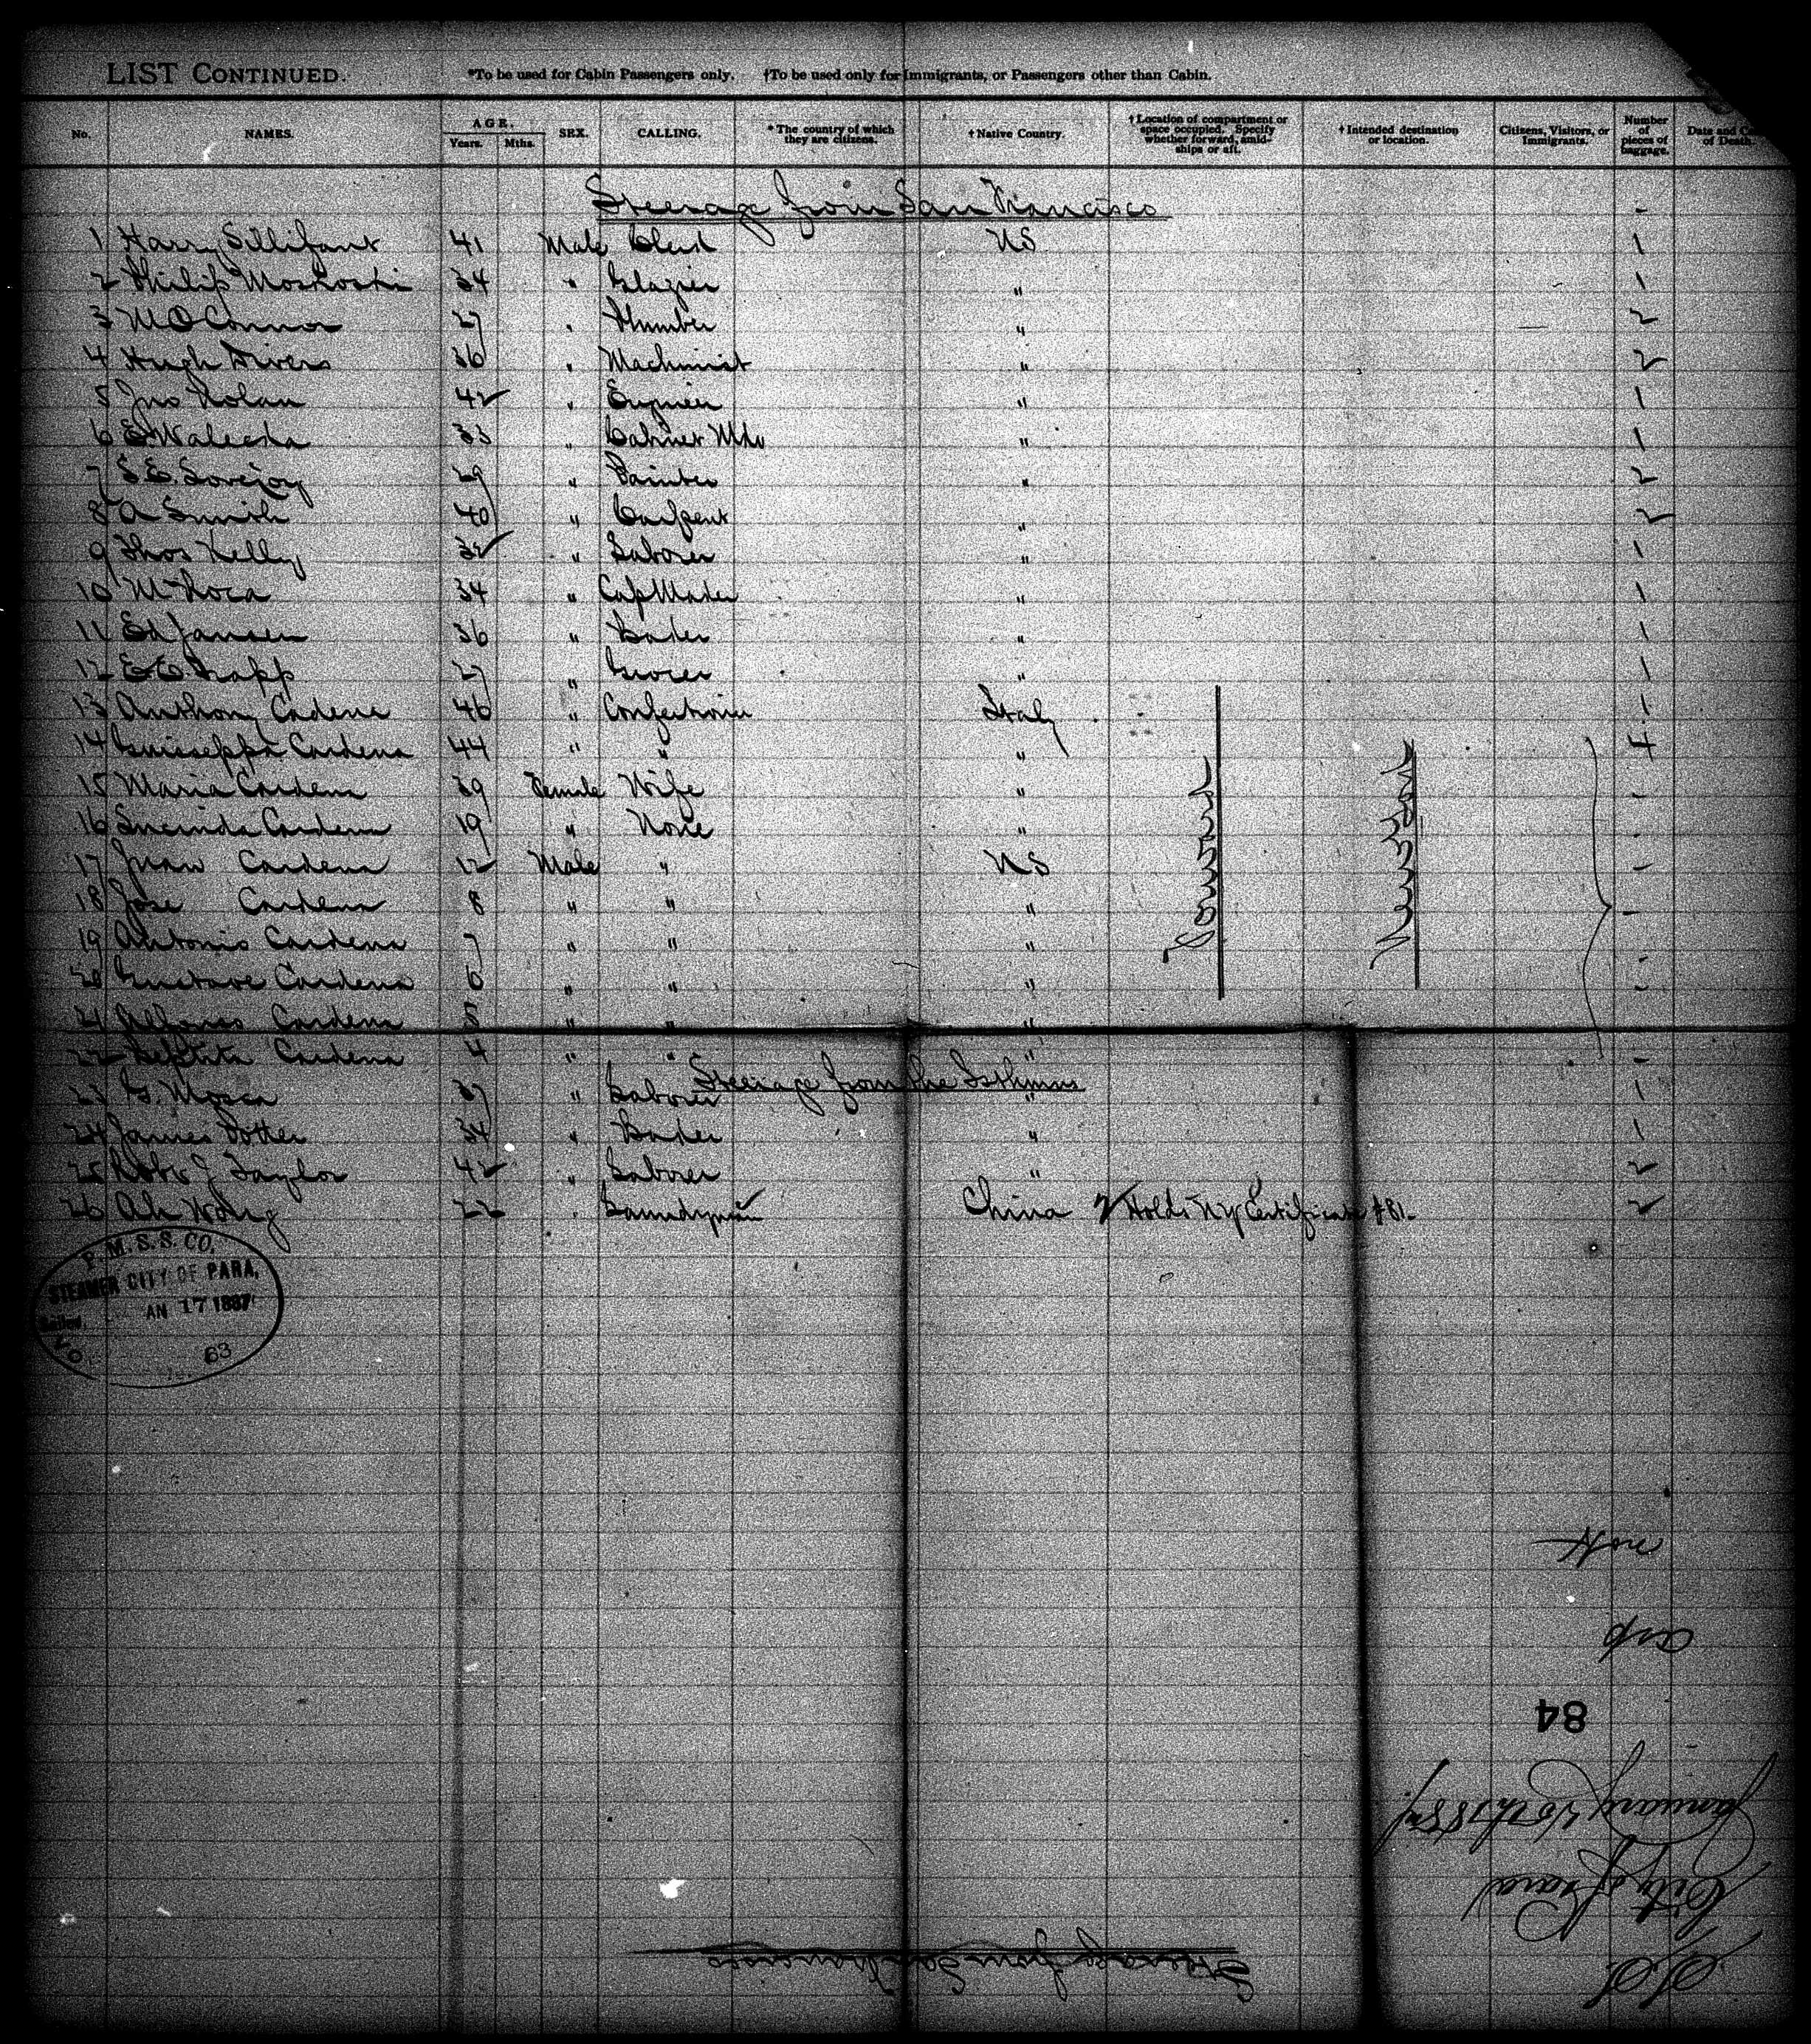 LIST CONTINUED. *To be used for Cabin Passengers only. †To be used only for Immigrants, or Passengers other than Cabin.
No. NAMES. AGE. Years. Mths. SEX. CALLING. * The country of which they are citizens. † Native Country. † Location of compartment or space occupied. Specify whether forward, amidships or aft. † Intended destination or location. Citizens, Visitors, or Immigrants. Number of pieces of baggage. Date and of Death.
Steerage from San Francisco -
1 Harry Sillifant 41 Male Clerk US 1
2 Philip Moskoski 34 " Glazier " 1
3 M O Connor 27 " Plumber " 2
4 Hugh Divers 36 " Machinist " 2
5 Jno Nolan 42 " Engineer " 1
6 E. 33 " Cabinet Mkr " 1
7 S.E. Lovejoy 29 " Painter " 2
8 A Smith 40 " Carpent " 2
9 Thos Kelly 32 " Laborer " 1
10 M Roca 34 " Cap Maker " 1
11 Ed Jansen 36 " Baker " 1
12 E.E. 27 " Grocer " 1
13 Anthony Cadena 46 " Confectioner Italy 1
14 Guisseppa Cardena 44 " " " 4
15 Maria Cardena 39 Female Wife " -
16 Lucinda Cardena 19 " None " -
17 Juan Cardena 12 Male " US -
18 Jose Cardena 8 " " " -
19 Antonio Cardena 7 " " " -
20 Gustave Cardena 6 " " " -
21 Alfonso Cardena 5 " " "
22 Cardena 4 " " " -
Steerage from the Isthmus
23 G. Mosca 37 " Laborer " 1
24 James Potter 34 " Baker " 1
25 Robt J Taylor 42 " Laborer " 2
26 Ah Wong 22 " Laundryman China Holds NY Certificate #81. 2
P. M. S. S. CO.
STEAMER CITY OF PARA,
AN 17 1887
63
asp
84
January 1887.
City of Para
S.S.
Steerage from San Francisco